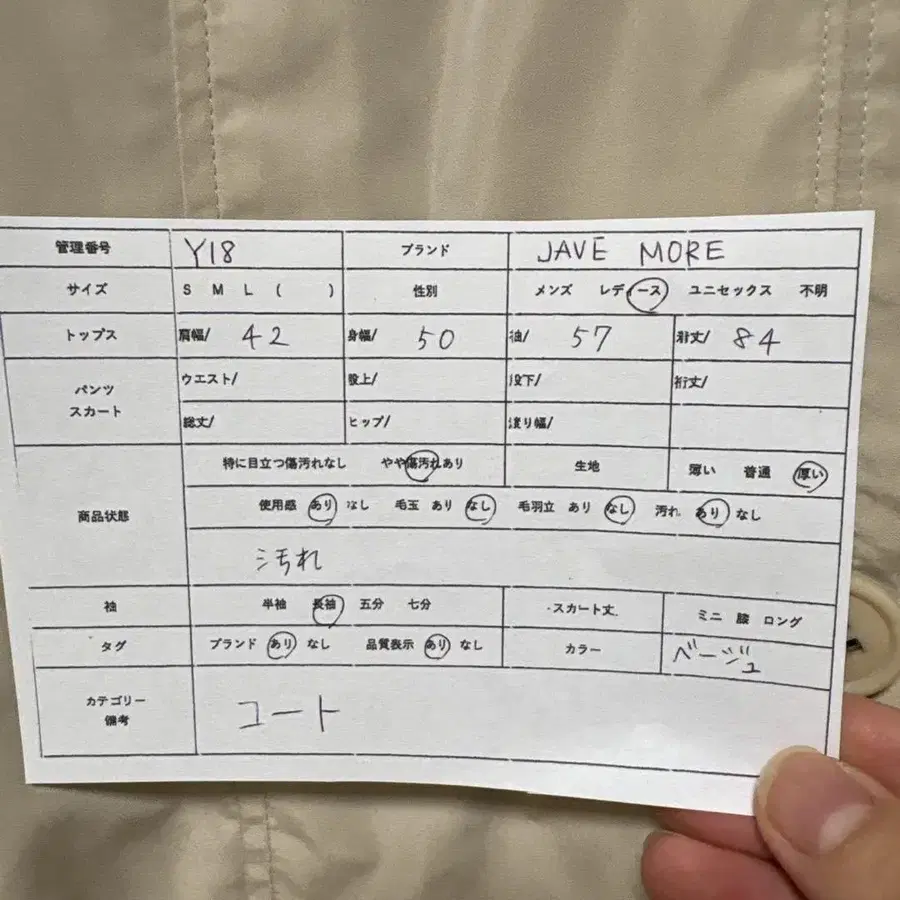 管理番号 Y18 ブランド JAVE MORE
サイズ S M L ( ) 性別 メンズ レディース ユニセックス 不明
トップス 肩幅/ 42 身幅/ 50 袖/ 57 着丈/ 84
パンツ スカート ウエスト/ 股上/ 股下/ 裄丈/
総丈/ ヒップ/ 渡り幅/
商品状態 特に目立つ傷汚れなし やや傷汚れあり 生地 薄い 普通 厚い
使用感 あり なし 毛玉 あり なし 毛羽立 あり なし 汚れ あり なし
汚れ
袖 半袖 長袖 五分 七分 スカート丈 ミニ 膝 ロング
タグ ブランド あり なし 品質表示 あり なし カラー ベージュ
カテゴリー 備考 コート